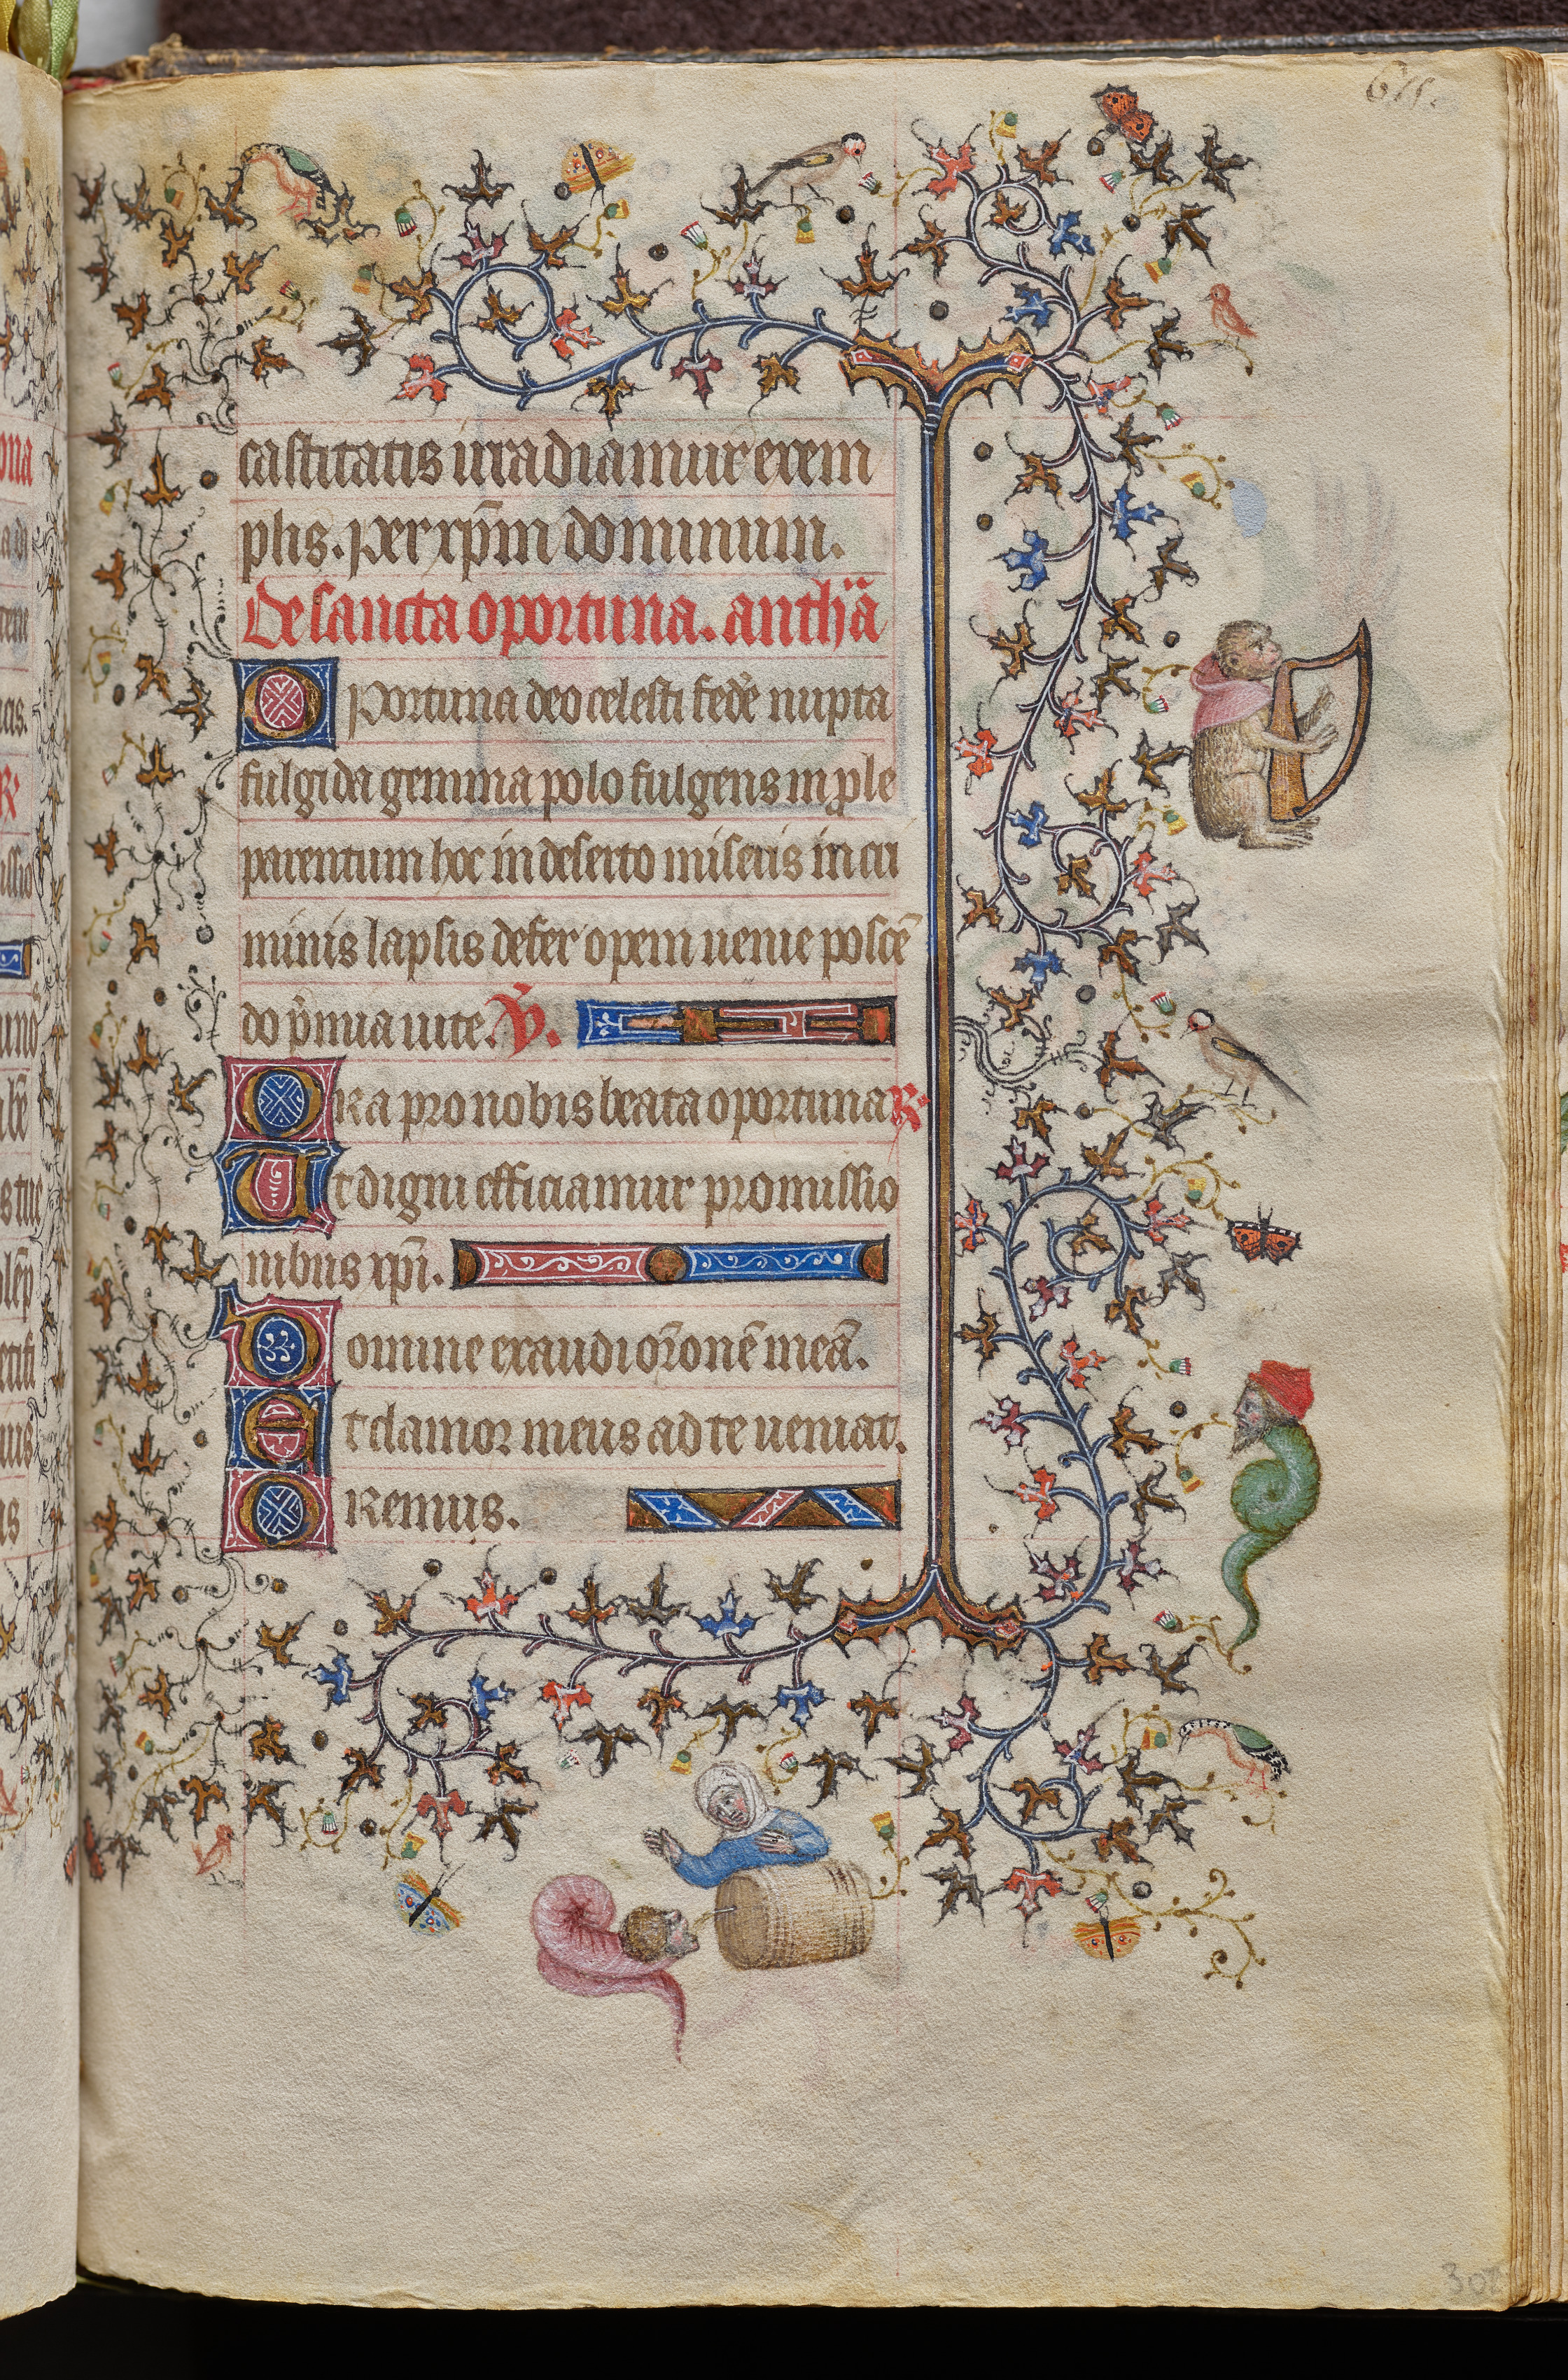 615.
castitatis irradiamur exem
plis. per xp̄m dominum.
De sancta oportuna. anth̄a
Oportuna deo celesti fede nupta
fulgida gemma polo fulgens in ple
parentum hoc in deserto miseris in cri
minis lapsis defer opem uenie poscē
do p̄mia uite. V̄.
Ora pro nobis beata oportuna R.
Ut digni efficiamur promissio
nibus xp̄i.
Domine exaudi or̄onē meā.
Et clamor meus ad te ueniat.
Oremus.